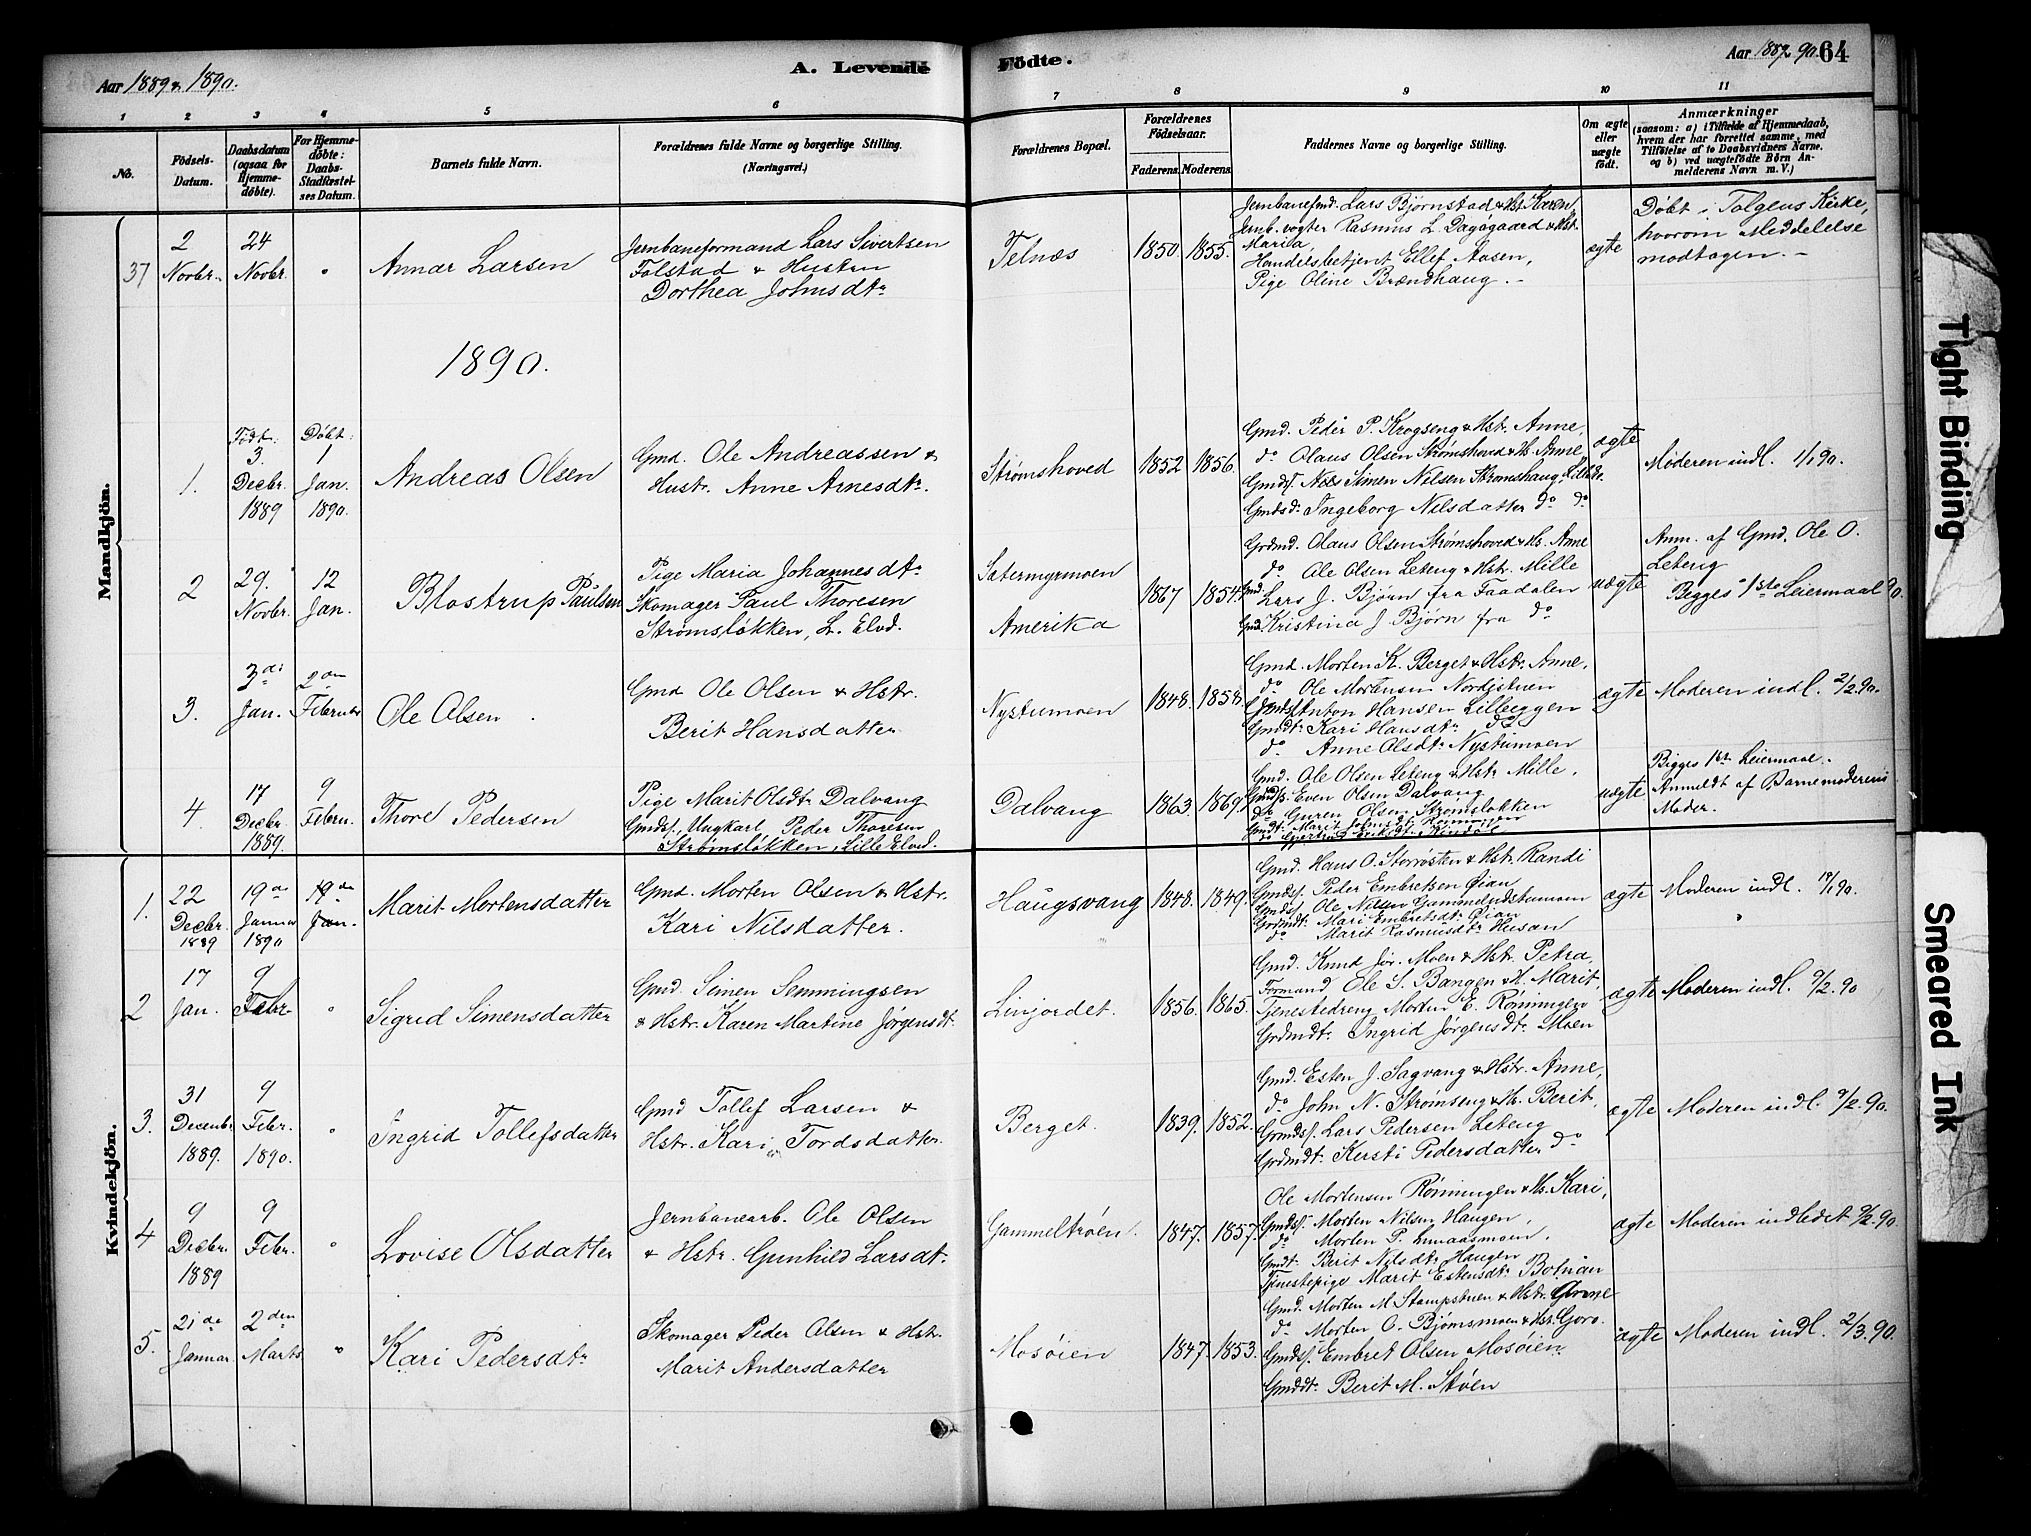 Aar 1889 & 1890.
A. Levende Födte.
Aar 1889 & 90. 64
1 2 3 4 5 6 7 8 9 10 11
No.
Födsels-Datum.
Daabsdatum (ogsaa for Hjemme-döbte).
For Hjemme-döbte: Daabs-Stadfæstel-ses Datum.
Barnets fulde Navn.
Forældrenes fulde Navne og borgerlige Stilling.
(Næringsvei.)
Forældrenes Bopæl.
Forældrenes Födselsaar.
Faderens. Moderens.
Faddernes Navne og borgerlige Stilling.
Om ægte eller uægte födt.
Anmærkninger
(saasom: a) i Tilfælde af Hjemmedaab,
hvem der har forrettet samme, med
Tilföielse af to Daabsvidners Navne.
og b) ved uægtefödte Börn An-
melderens Navn m. V.)
Mandkjön.
37
2 Novbr.
24 Novbr.
"
Annar Larsen
Jernbaneformand Lars Sivertsen
Tolstad & Hustru
Dorthea Johnsdtr
Telnæs
1850. 1855.
Jernbanefmd. Lars Bjørnstad & Hst. Karen,
Jernb.vogter Rasmus L. Dagsgaard & Hst.
Marita,
Handelsbetjent Ellef Aasen,
Pige Oline Brændhaug. -
ægte
Døbt i Tolgens Kirke,
hvorom Meddelelse
modtagen. -
1890.
1.
Født: 3. Decbr. 1889
Døbt: 1 Jan. 1890.
Andreas Olsen
Gmd. Ole Andreassen &
Hustr. Anne Arnesdtr.
Strømshoved
1852 1856.
Gmd. Peder P. Krogseng & Hstr. Anne,
do Olaus Olsen Strømshoved & H. Anne
Gmdsf. Nils Simen Nielsen Strømshaug, Lille
Gmdsd. Ingeborg Nilsdatter do do
ægte
Moderen indl. 1/1 90.
2
29. Novbr.
12 Jan.
Blostrup Paulsen
Pige Maria Johannesdtr
Skomager Paul Thoresen
Strømsløkken, L. Elvd.
Sætermyrmoen
Amerika
1867 1854.
Grdmd. Olaus Olsen Strømshoved & Hs. Anne
do Ole Olsen Leteng & Hstr. Mille
Gmd. Lars J. Bjørn fra Faadalen
Gmd. Kristina J. Bjørn fra do
uægte
Anm. af Gmd. Ole O.
Leteng
Begges 1ste Leiermaal
3.
3die Jan.
2den Februar
Ole Olsen
Gmd Ole Olsen & Hstr.
Berit Hansdatter
Nystumoen
1848. 1858.
Gmd. Morten K. Berget & Hstr. Anne,
do Ole Mortensen Nordistuen
Gmdsf. Anton Hansen Lilleeggen
Gmdt. Kari Hansdtr do
do Anne Olsdtr Nystumoen
ægte
Moderen indl. 2/2 90.
4.
17 Decbr. 1889.
9 Febru.
Thore Pedersen
Pige Marit Olsdtr Dalvang
Gmdsf. Ungkarl Peder Thoresen
Strømsløkken, Lille Elvd.
Dalvang
1863. 1869.
Gmd. Ole Olsen Leteng & Hstr Mille.
Gmdsf. Even Olsen Dalvang
do Guren Olsen Strømsløkken
uægte
Begges 1ste Leiermaal.
Anmeldt af Barnemoderens
Moder.
Kvindekjön.
1.
22 Decbr. 1889
19de Januar 1890
19de Jan.
Marit Mortensdatter
Gmd. Morten Olsen & Hstr.
Kari Nilsdatter.
Haugsvang
1848. 1849.
Gmd. Hans O. Storrøsten & Hstr. Randi
Gmdsf. Peder Embretsen Øian
Gmdsf. Ole Nilsen Gammelødstumoen
Grdmdt. Mari Embretsdtr Øian
do Marit Rasmusdtr Husan
ægte
Moderen indl. 19/1 90.
2
17 Jan.
9 Febr.
"
Sigrid Simensdatter
Gmd. Simen Semmingsen
& Hstr. Karen Martine Jørgensdtr.
Linjordet.
1856. 1865.
Gmd. Knud Jør. Moen & Hstr. Petra,
Formand Ole S. Bangen & H. Marit,
Tjenestedreng Morten E. Rønningen
Grdmdt. Ingrid Jørgensdtr Moen
ægte
Moderen indl. 9/2. 90
3.
31 Decembr. 1889.
9 Febr. 1890.
"
Ingrid Tollefsdatter
Gmd Tollef Larsen &
Hstr. Kari Tordsdatter.
Berget.
1839. 1852.
Gmd. Esten J. Sagvang & Hstr. Anne,
do John N. Strømseng & H. Berit,
Grmdsf. Lars Pedersen Leteng
Grdmdt. Kersti Pedersdatter do
ægte
Moderen indl. 9/2. 90.
4
9 Decbr. 1889
9 Febr.
"
Lovise Olsdatter
Jernbanearb. Ole Olsen
& Hstr. Gunhild Larsdtr.
Gammeltrøen.
1847. 1857.
Ole Mortensen Rønningen & Hs. Kari,
Gmdsf. Morten Nilsen Haugen,
do Morten P.
Gmdt. Berit Nilsdtr Haugen
Tjenestepige Marit Estensdtr
ægte
Moderen indledet 9/2. 90.
5.
21de Januar.
2den Marts
"
Kari Pedersdtr
Skomager Peder Olsen & Hstr
Marit Andersdatter
Mosøien
1847. 1853.
Gmd. Morten M. Stampstuen & Hstr.
do Morten O. Bjørnsmoen & Hst. Goro.
Gmdsf. Embret Olsen Mosøien
Gmddt. Berit M. Støen
ægte
Moderen indl. 2/3. 90.
Tight Binding
Smeared Ink